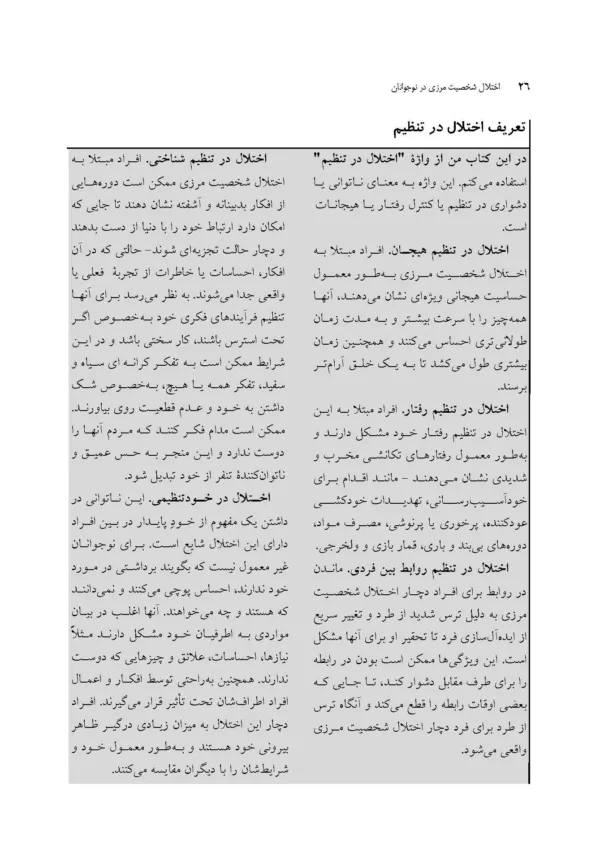 ۲۶ اختلال شخصیت مرزی در نوجوانان
تعریف اختلال در تنظیم
در این کتاب من از واژهٔ "اختلال در تنظیم"
استفاده می‌کنم. این واژه به معنای ناتوانی یا
دشواری در تنظیم یا کنترل رفتار یا هیجانات
است.
اختلال در تنظیم هیجان. افراد مبتلا به
اختلال شخصیت مرزی به‌طور معمول
حساسیت هیجانی ویژه‌ای نشان می‌دهند، آنها
همه‌چیز را با سرعت بیشتر و به مدت زمان
طولانی‌تری احساس می‌کنند و همچنین زمان
بیشتری طول می‌کشد تا به یک خلق آرام‌تر
برسند.
اختلال در تنظیم رفتار. افراد مبتلا به این
اختلال در تنظیم رفتار خود مشکل دارند و
به‌طور معمول رفتارهای تکانشی مخرب و
شدیدی نشان می‌دهند - مانند اقدام برای
خودآسیب‌رسانی، تهدیدات خودکشی
عودکننده، پرخوری یا پرنوشی، مصرف مواد،
دوره‌های بی‌بند و باری، قمار بازی و ولخرجی.
اختلال در تنظیم روابط بین فردی. ماندن
در روابط برای افراد دچار اختلال شخصیت
مرزی به دلیل ترس شدید از طرد و تغییر سریع
از ایده‌آل‌سازی فرد تا تحقیر او برای آنها مشکل
است. این ویژگی‌ها ممکن است بودن در رابطه
را برای طرف مقابل دشوار کند، تا جایی که
بعضی اوقات رابطه را قطع می‌کند و آنگاه ترس
از طرد برای فرد دچار اختلال شخصیت مرزی
واقعی می‌شود.
اختلال در تنظیم شناختی. افراد مبتلا به
اختلال شخصیت مرزی ممکن است دوره‌هایی
از افکار بدبینانه و آشفته نشان دهند تا جایی که
امکان دارد ارتباط خود را با دنیا از دست بدهند
و دچار حالت تجزیه‌ای شوند- حالتی که در آن
افکار، احساسات یا خاطرات از تجربهٔ فعلی یا
واقعی جدا می‌شوند. به نظر می‌رسد برای آنها
تنظیم فرآیندهای فکری خود به‌خصوص اگر
تحت استرس باشند، کار سختی باشد و در این
شرایط ممکن است به تفکر کرانه ای سیاه و
سفید، تفکر همه یا هیچ، به‌خصوص شک
داشتن به خود و عدم قطعیت روی بیاورند.
ممکن است مدام فکر کنند که مردم آنها را
دوست ندارد و این منجر به حس عمیق و
ناتوان‌کنندهٔ تنفر از خود تبدیل شود.
اختلال در خودتنظیمی. این ناتوانی در
داشتن یک مفهوم از خودِ پایدار در بین افراد
دارای این اختلال شایع است. برای نوجوانان
غیر معمول نیست که بگویند برداشتی در مورد
خود ندارند، احساس پوچی می‌کنند و نمی‌دانند
که هستند و چه می‌خواهند. آنها اغلب در بیان
مواردی به اطرفیان خود مشکل دارند مثلاً
نیازها، احساسات، علائق و چیزهایی که دوست
ندارند. همچنین به‌راحتی توسط افکار و اعمال
افراد اطراف‌شان تحت تأثیر قرار می‌گیرند. افراد
دچار این اختلال به میزان زیادی درگیر ظاهر
بیرونی خود هستند و به‌طور معمول خود و
شرایط‌شان را با دیگران مقایسه می‌کنند.